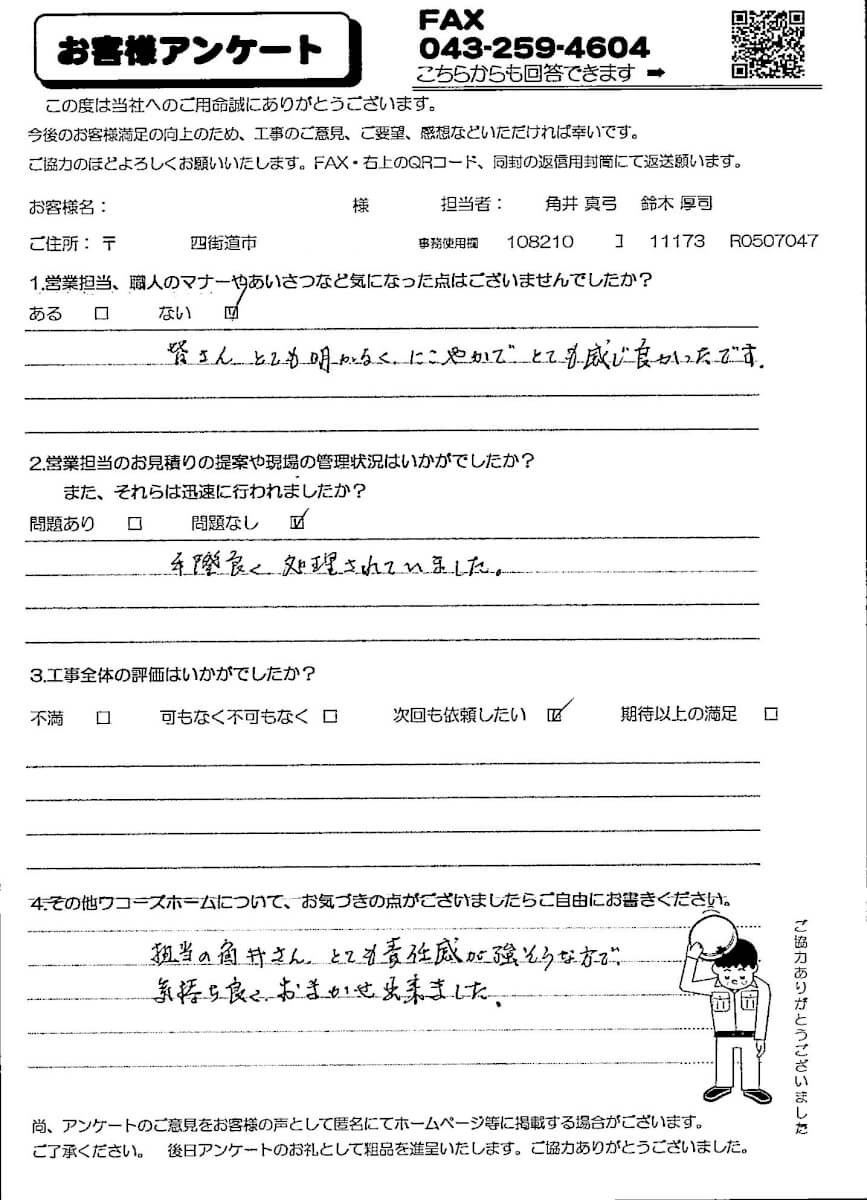 お客様アンケート
FAX
043-259-4604
こちらからも回答できます ➡
この度は当社へのご用命誠にありがとうございます。
今後のお客様満足の向上のため、工事のご意見、ご要望、感想などいただければ幸いです。
ご協力のほどよろしくお願いいたします。FAX・右上のQRコード、同封の返信用封筒にて返送願います。
お客様名： 様 担当者： 角井 真弓 鈴木 厚司
ご住所：〒 四街道市 事務使用欄 108210 ｺ 11173 R0507047
1.営業担当、職人のマナーやあいさつなど気になった点はございませんでしたか？
ある □ ない ☑
皆さん とても明かるく、にこやかで とても感じ良かったです。
2.営業担当のお見積りの提案や現場の管理状況はいかがでしたか？
また、それらは迅速に行われましたか？
問題あり □ 問題なし ☑
手際良く 処理されていました。
3.工事全体の評価はいかがでしたか？
不満 □ 可もなく不可もなく □ 次回も依頼したい ☑ 期待以上の満足 □
4.その他ワコーズホームについて、お気づきの点がございましたらご自由にお書きください。
担当の角井さん、とても責任感が強そうな方で、
気持ち良く、おまかせ出来ました。
ご協力ありがとうございました
尚、アンケートのご意見をお客様の声として匿名にてホームページ等に掲載する場合がございます。
ご了承ください。 後日アンケートのお礼として粗品を進呈いたします。ご協力ありがとうございました。